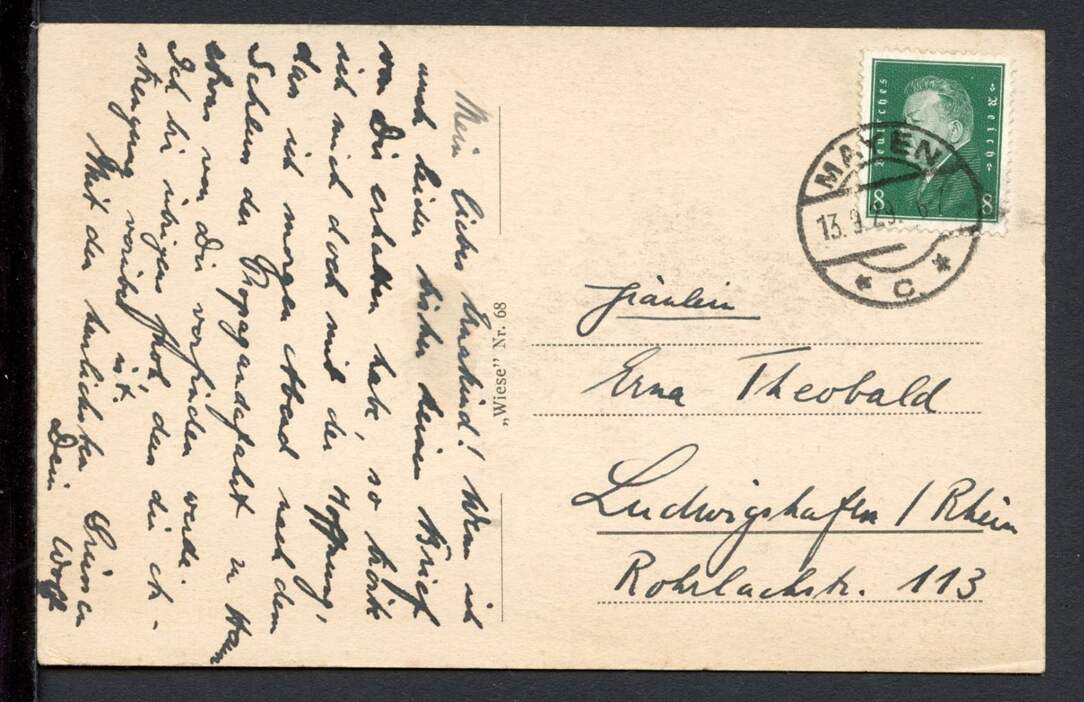 Mein liebes Annekind! Wenn ich
auch leider bisher keinen Brief
von Dir erhalten habe, so
ich mich doch mit der Hoffnung,
das ich morgen Abend nach dem
Schluss der Propagandafahrt zu Haus
etwas von Dir vorfinden werde.
Ich bin übrigens froh, dass die
vorbei ist.
Mit den herzlichsten Grüssen
Dein Wolf
„Wiese" Nr. 68
Deutsches Reich
8 8
MAYEN
13.9.29.
* C. *
Fräulein
Erna Theobald
Ludwigshafen / Rhein
Rohrlachstr. 113